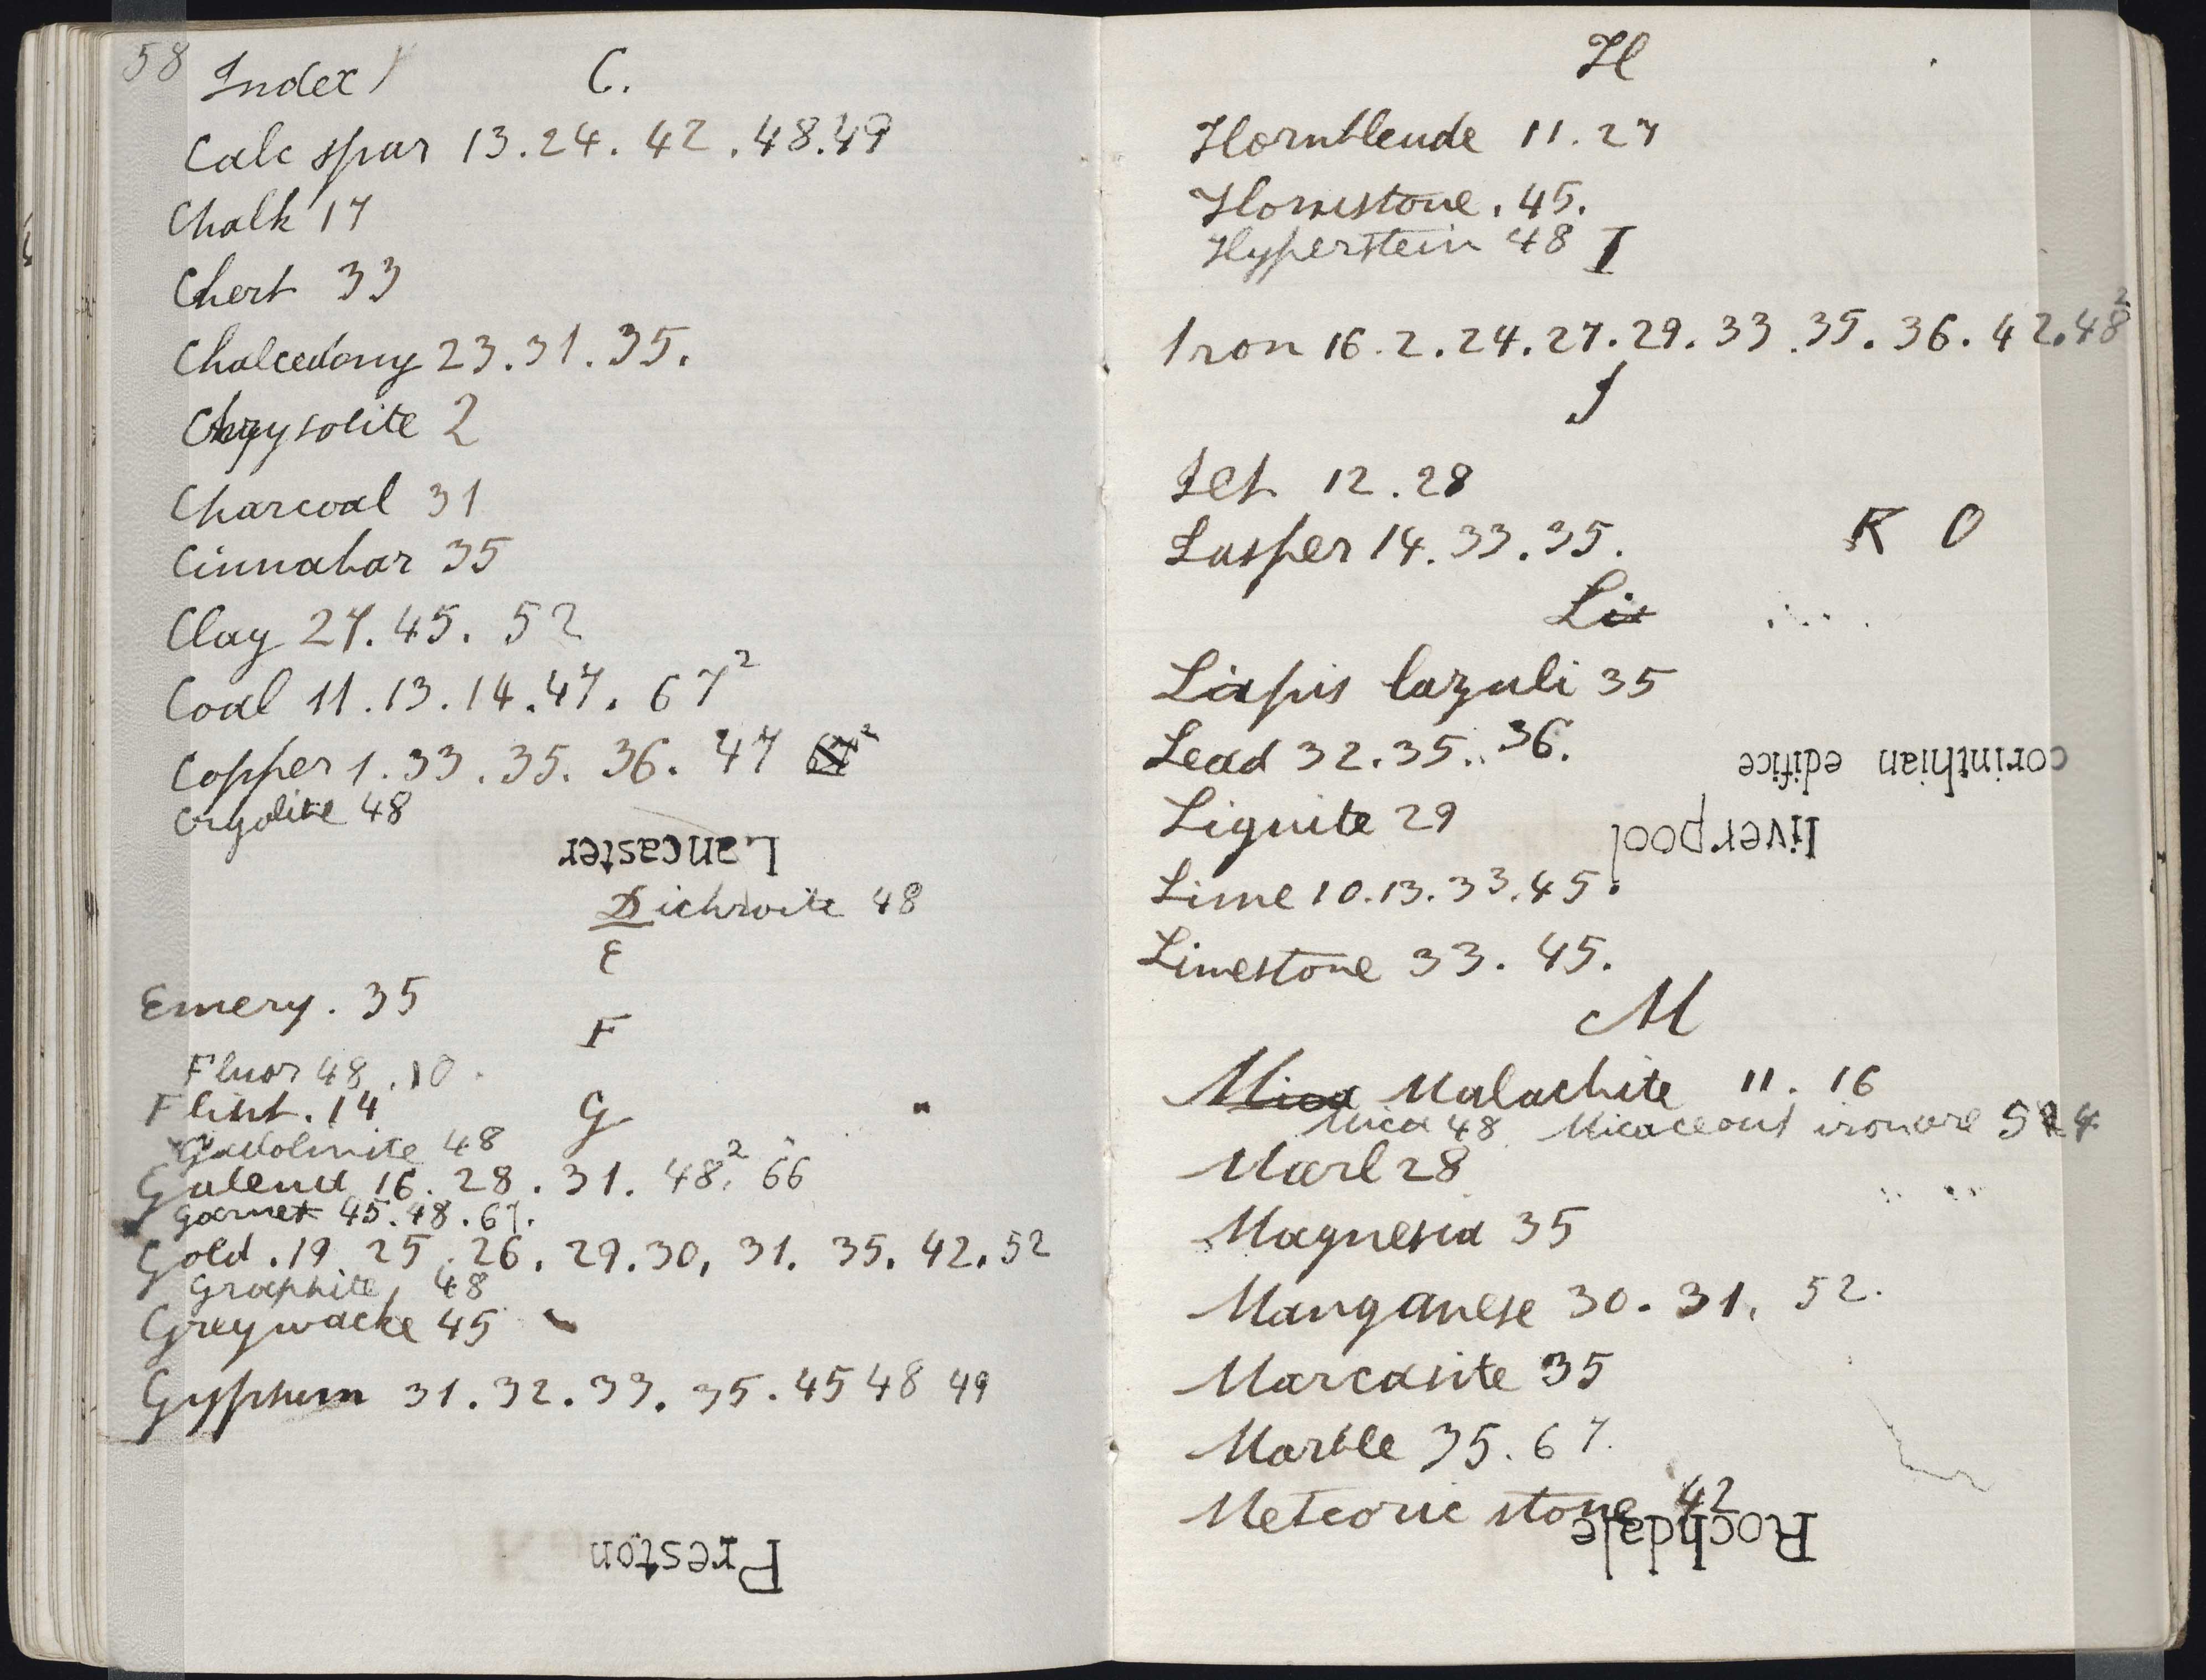 58 Index) C.
Calc spar 13.24. 42.48.49
Chalk 17
Chert 33
Chalcedony 23.31.35.
Chrysolite 2
Charcoal 31
Cinnabar 35
Clay 27.45. 52
Coal 11.13.14.47. 67²
Copper 1.33.35. 36. 47
Cryolite 48
Lancaster
Dichroite 48
E
Emery. 35
F
Fluor 48.10.
Flint. 14
G
Gadolinite 48
Galena 16. 28. 31. 48². 66
Garnet 45.48.67.
Gold. 19 25. 26. 29.30, 31. 35. 42. 52
Graphite, 48
Greywacke 45
Gypsum 31.32.33.35.45 48 49
Preston
H
Hornblende 11.27
Hornstone. 45.
Hyperstein 48
I
Iron 16.2.24.27.29.33.35.36.42.48²
J
Jet 12.28
Jasper 14.33.35.
K O
Li
Lapis lazuli 35
Lead 32.35..36.
corinthian edifice
Lignite 29
liverpool
Lime 10.13.33.45.
Limestone 33. 45.
M
Mica Malachite 11. 16
Mica 48 Micaceous iron ore 524
Marl 28
Magnesia 35
Manganese 30. 31. 52.
Marcasite 35
Marble 35.67.
Meteoric stone 42
Rochdale